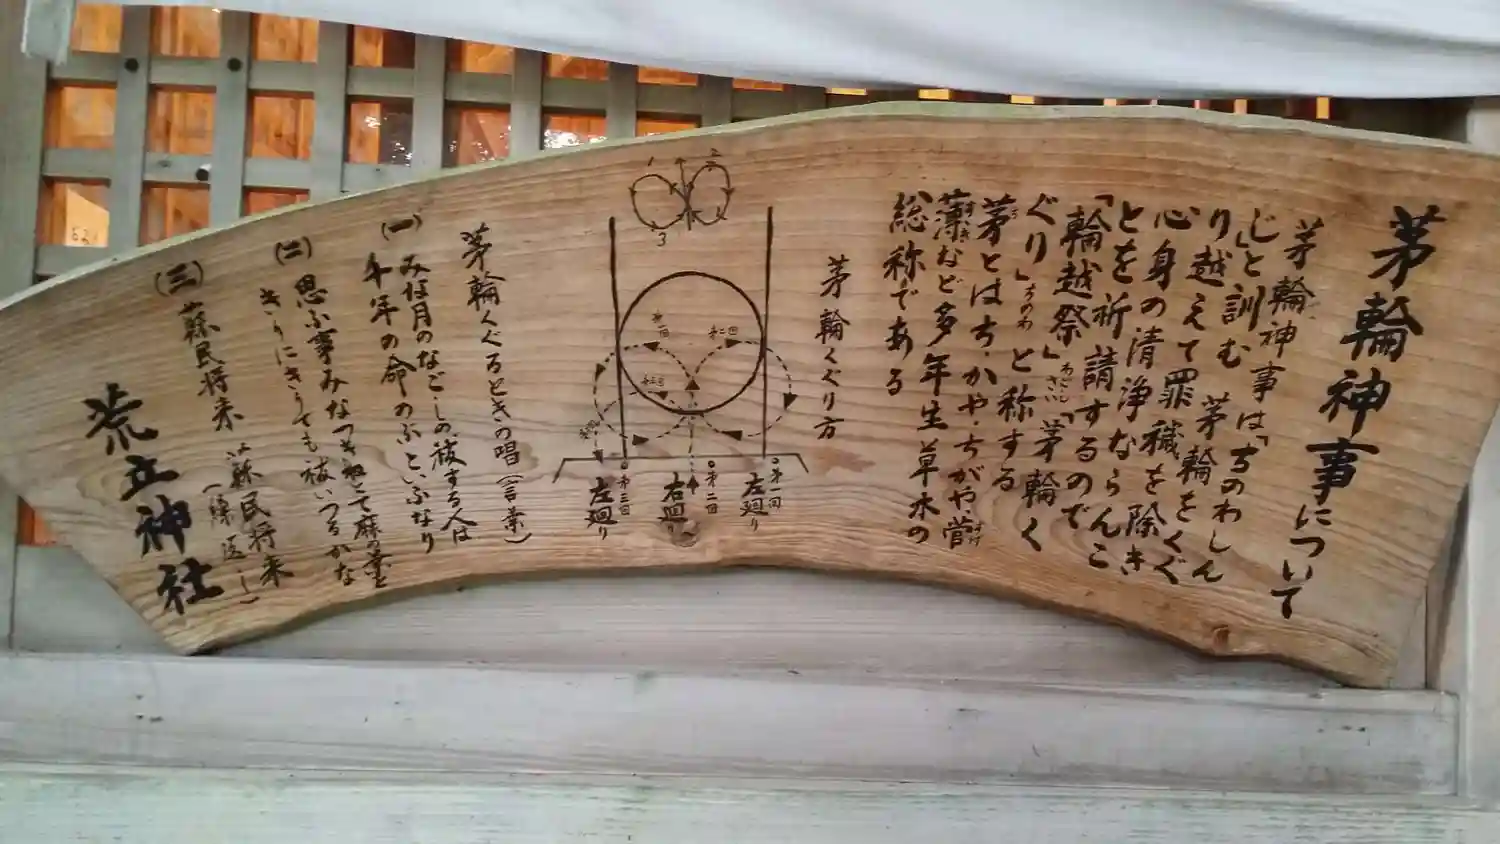 茅輪神事について
茅輪神事は「ちのわしん
じ」と訓む 茅輪をくぐ
り越えて罪穢を除き
心身の清浄ならんこ
とを祈請するのである
「輪越祭」「茅輪く
わごしさい
ぐり」と称する
ちのわ
茅とはち・かや・ちがや・菅
ち
すげ
薄など多年生草木の
すすき
総称である
茅輪くぐり方
1
2
3
第一回
第二回
第三回
第一回
左廻り
第二回
右廻り
第三回
左廻り
茅輪くぐるときの唱(言葉)
(一)
みな月のなごしの祓する人は
千年の命のぶといふなり
(二)
思ふ事みなつきねとて麻の葉を
きりにきりても祓いつるかな
(三)
蘇民将来 蘇民将来
(繰返し)
荒立神社